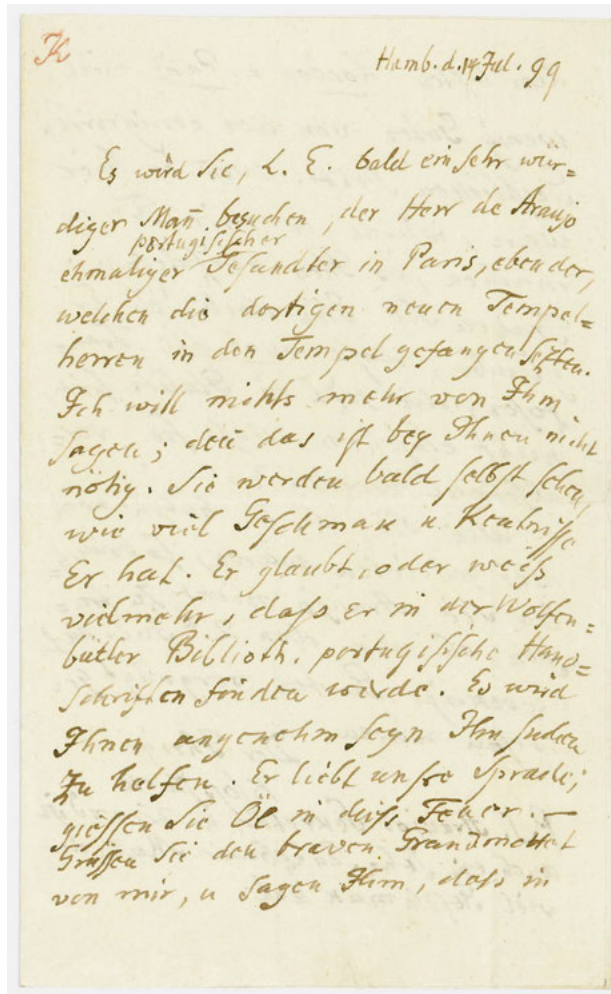 K
Hamb. d. 14 Jul. 99
Es wird Sie, L. E. bald ein sehr wür=
diger Mañ besuchen, der Herr de Araujo
portugisischer
ehmaliger Gesandter in Paris, eben der,
welchen die dortigen neuen Tempel=
herren in den Tempel gefangen sezten.
Ich will nichts mehr von Ihm
sagen; deñ das ist bey Ihnen nicht
nötig. Sie werden bald selbst sehen,
wie viel Geschmak u. Kentnisse
Er hat. Er glaubt, oder weiss
vielmehr, dass Er in der Wolfen=
bütler Biblioth. portugisische Hand=
schriften finden werde. Es wird
Ihnen angenehm seyn Ihm suchen
zu helfen. Er liebt unsre Sprache;
giessen Sie Öl in diess Feuer. —
Grüssen Sie den braven Grandmottet
von mir, u sagen Ihm, dass in